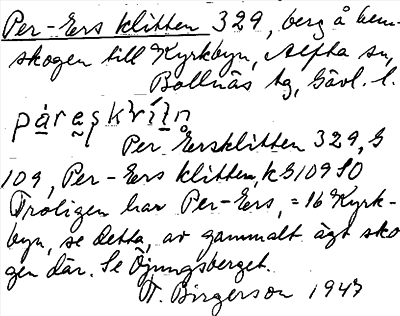 Per-Ers klitten 329, berg å hem-
skogen till Kyrkbyn, Alfta sn,
Bollnäs tg, Gävl. l.
pàreşkri̇̀ln
Per Ersklitten 329, G
109, Per-Ers klitten, k G109 SO
Troligen har Per-Ers, = 16 Kyrk-
byn, se detta, av gammalt ägt sko
gen där. Se Öjungsberget.
T. Birgerson 1947